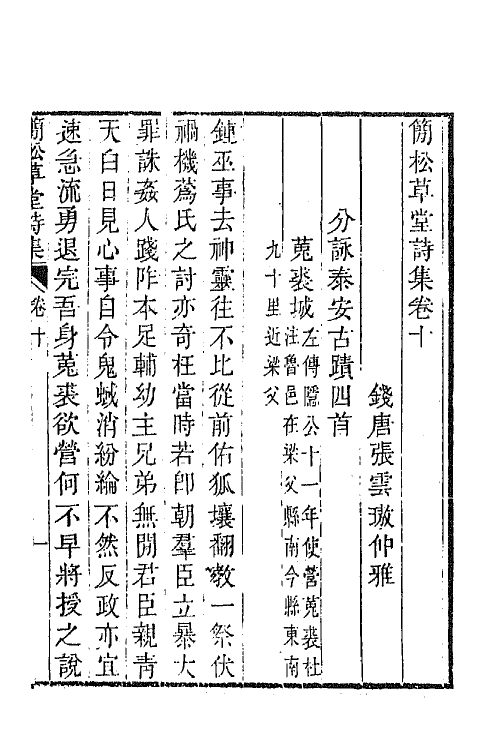 簡松草堂詩集卷十
錢唐張雲璈仲雅
分詠泰安古蹟四首
菟裘城左傳隱公十一年使營菟裘杜
注魯邑在梁父縣南今縣東南
九十里近梁父
鍾巫事去神靈往不比從前佑狐壤翻教一祭伏
禍機蒍氏之討亦奇枉當時若即朝羣臣立暴大
罪誅姦人踐阼本足輔幼主兄弟無閒君臣親靑
天白日見心事自令鬼蜮消紛綸不然反政亦宜
速急流勇退完吾身菟裘欲營何不早將授之說
簡松草堂詩集
卷十
一